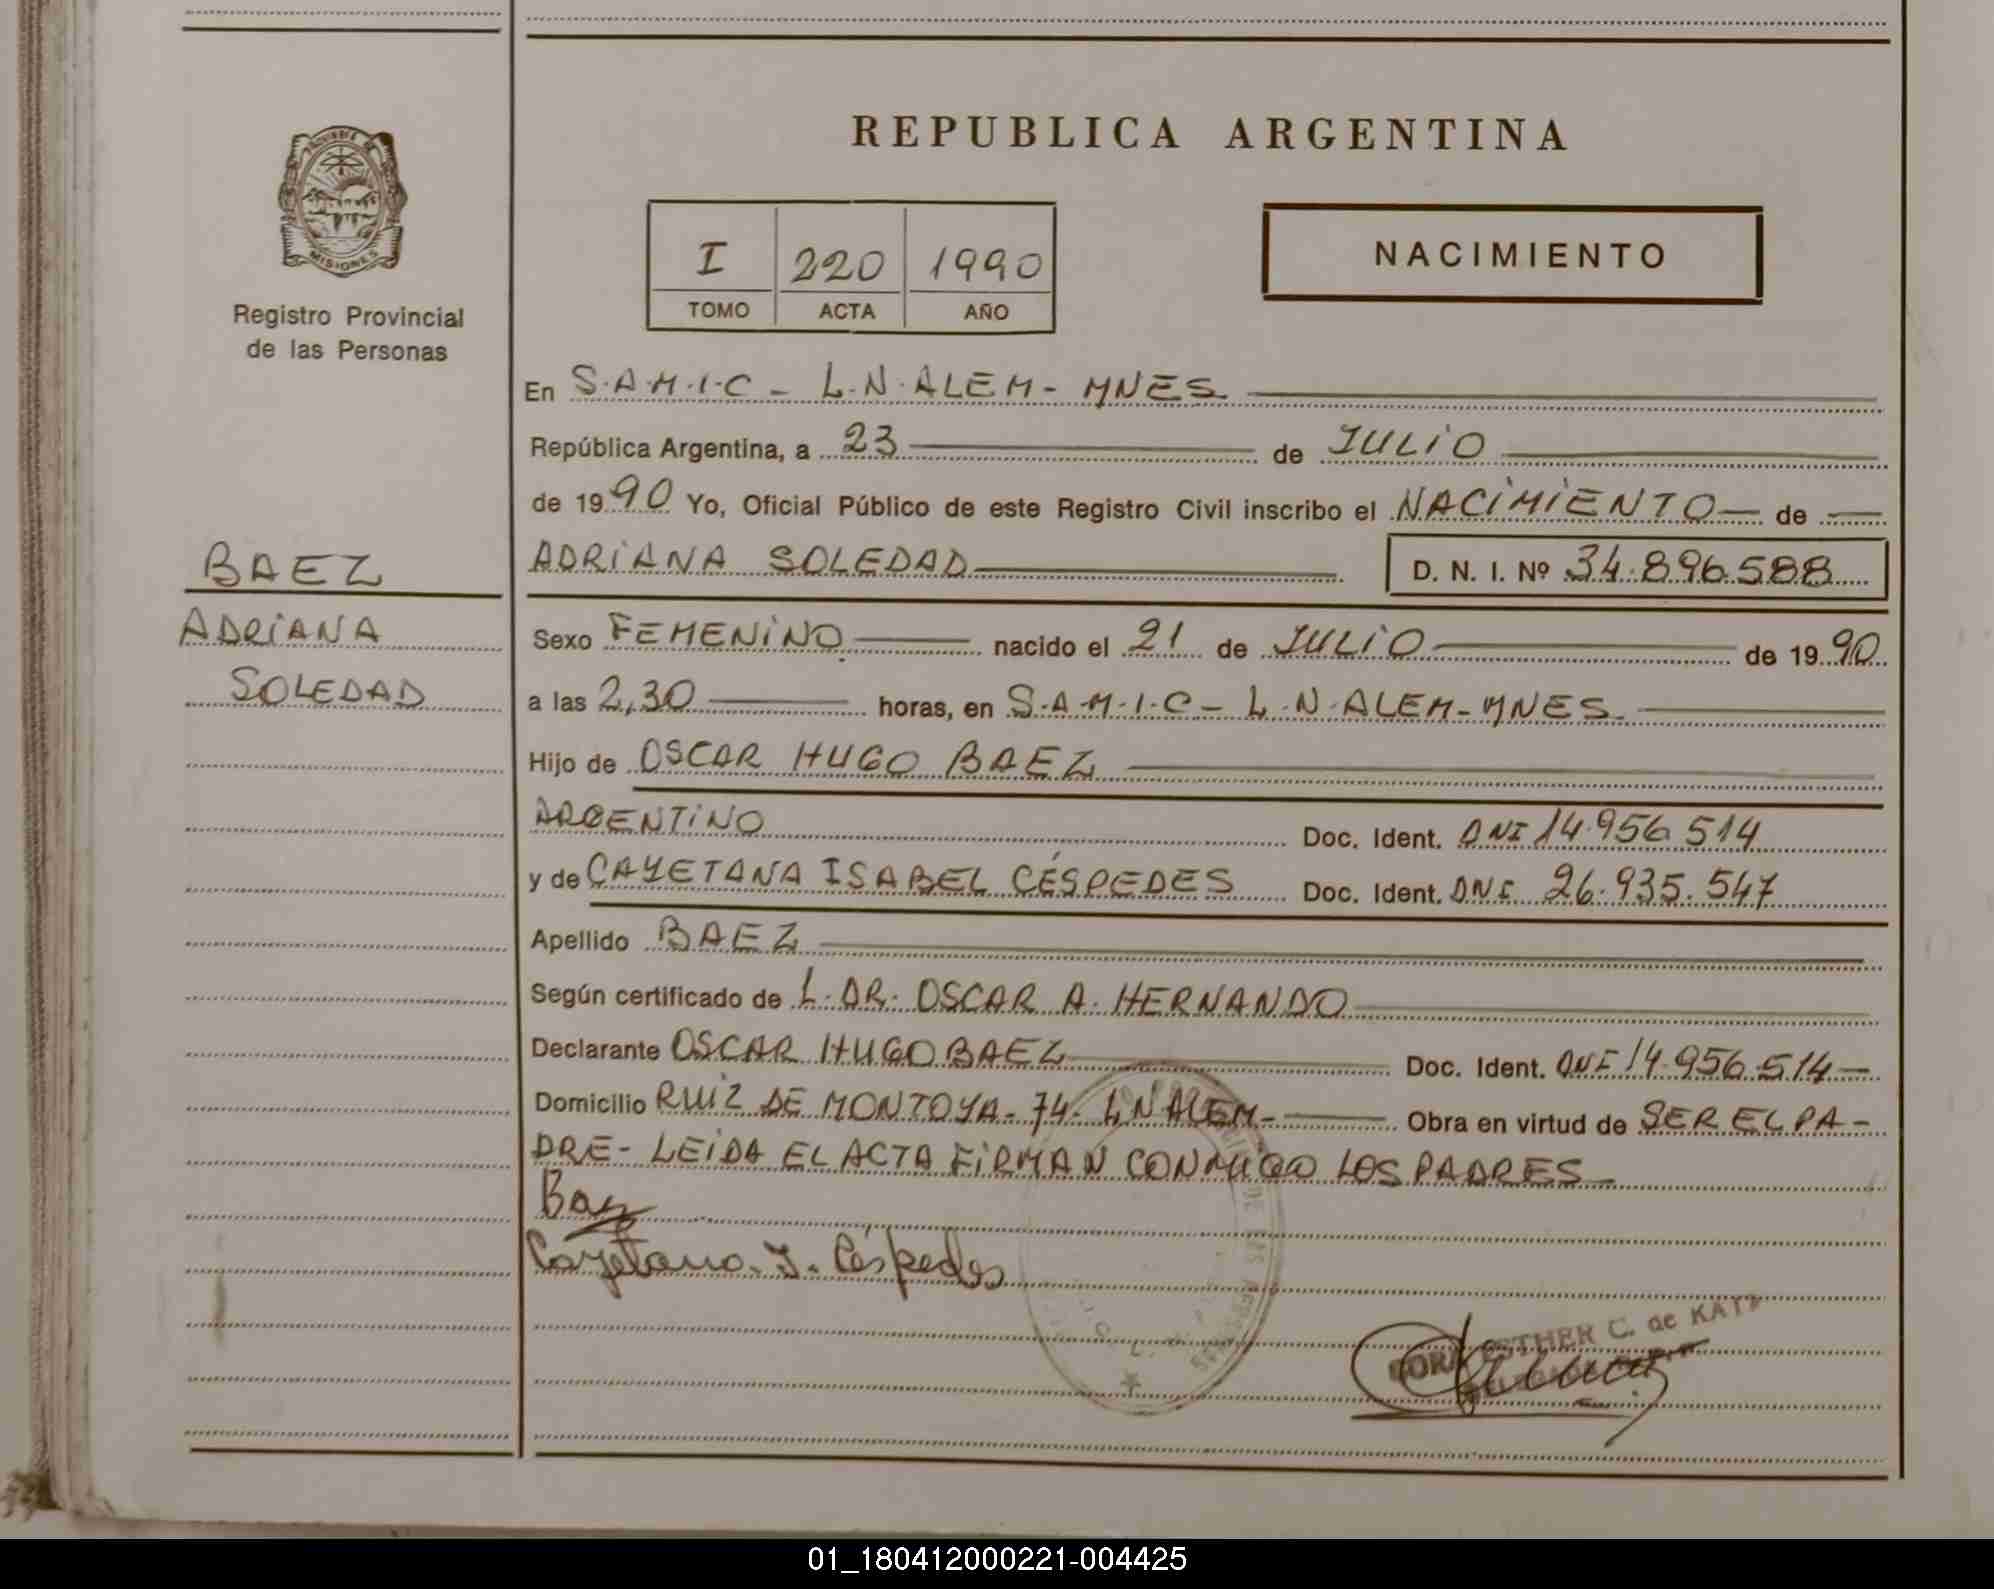 REPUBLICA ARGENTINA
PROVINCIA DE
MISIONES
Registro Provincial
de las Personas
I 220 1990
TOMO ACTA AÑO
NACIMIENTO
En S.A.M.I.C - L.N.ALEM - MNES
República Argentina, a 23 de JULIO
de 1990 Yo, Oficial Público de este Registro Civil inscribo el NACIMIENTO de
BAEZ
ADRIANA
SOLEDAD
ADRIANA SOLEDAD D. N. I. Nº 34.896.588
Sexo FEMENINO nacido el 21 de JULIO de 1990
a las 2,30 horas, en S.A.M.I.C - L.N.ALEM-MNES
Hijo de OSCAR HUGO BAEZ
ARGENTINO Doc. Ident. DNI 14.956.514
y de CAYETANA ISABEL CÉSPEDES Doc. Ident. DNI 26.935.547
Apellido BAEZ
Según certificado de L. DR. OSCAR A. HERNANDO
Declarante OSCAR HUGO BAEZ Doc. Ident. DNI 14.956.514
Domicilio RUIZ DE MONTOYA - 74 - L N ALEM - Obra en virtud de SER EL PA-
DRE - LEIDA EL ACTA FIRMAN CONMIGO LOS PADRES
Baz
Cayetana. I. Céspedes
ESTHER C. de KATZ
01_180412000221-004425